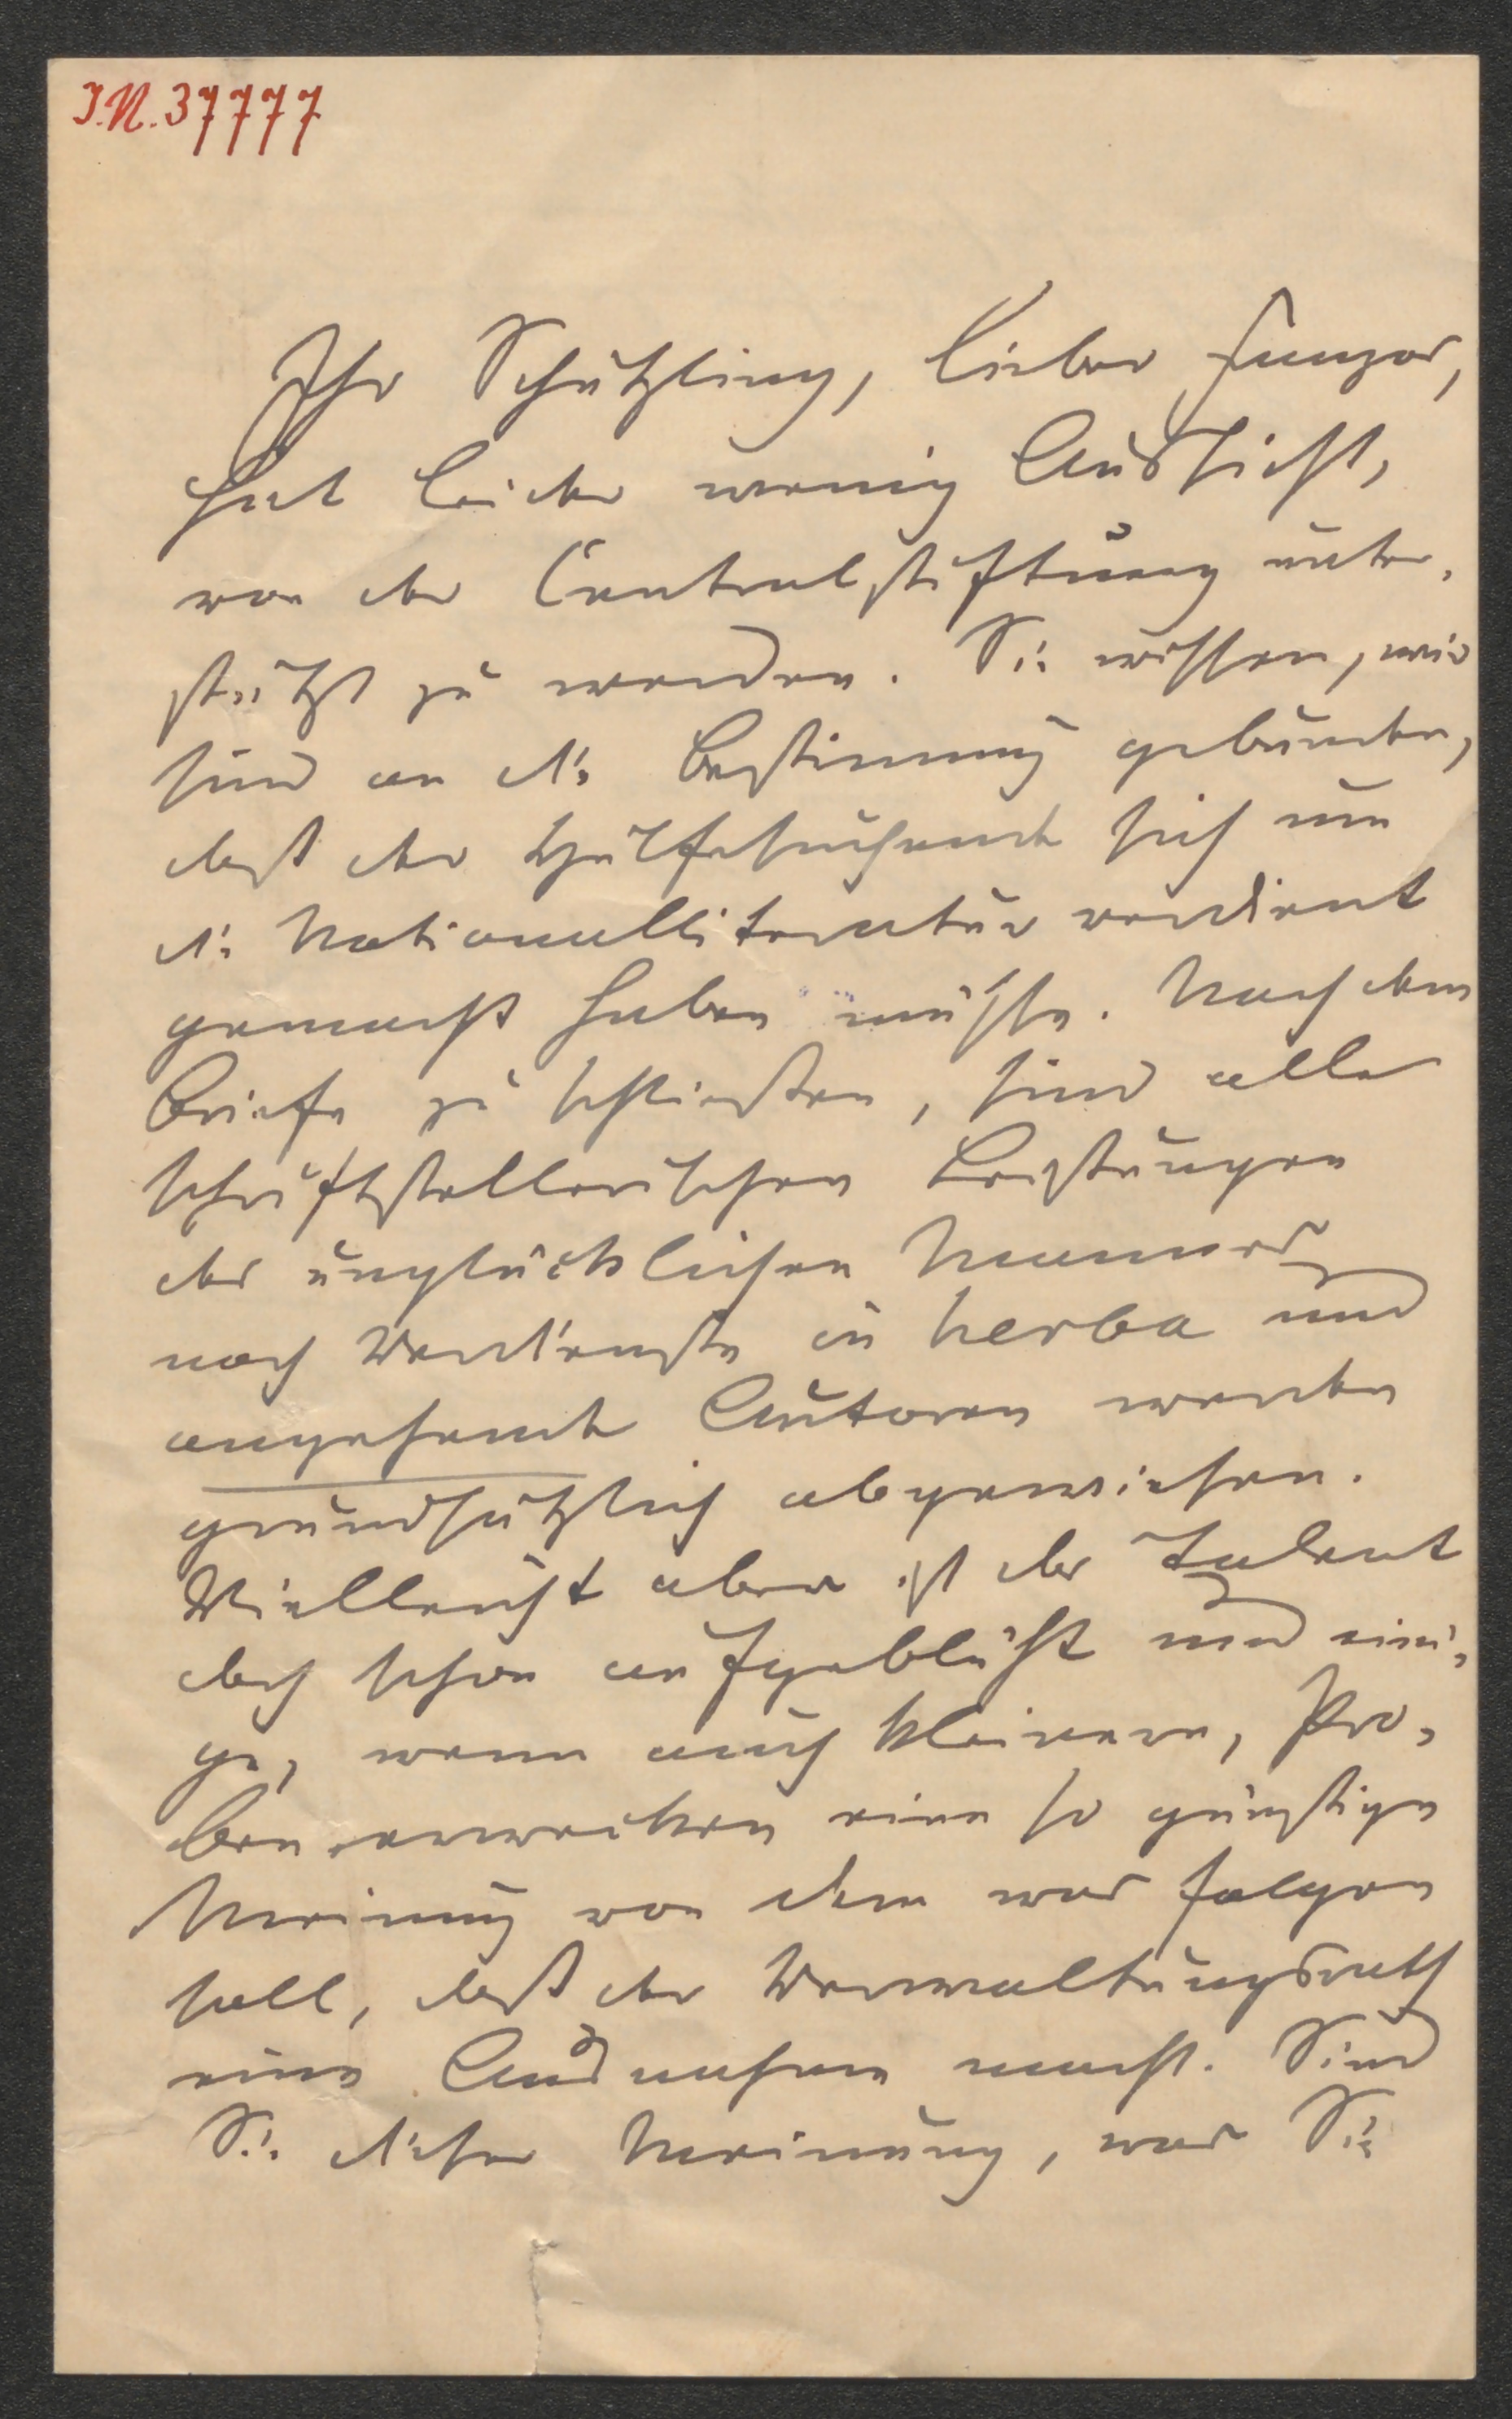 I.N. 37777
Ihr Schützling, lieber
hat leider wenig Aussicht,
von der Centralstiftung unter-
stützt zu werden. Sie wissen, wir
sind an die Bestimmung gebunden,
daß der Hülfesuchende sich um
die Nationallitteratur verdient
gemacht haben müsse. Nach dem
Briefe zu schließen, sind alle
schriftstellerischen Leistungen
des unglücklichen Mannes
noch Verdienste in herba und
angehende Autoren werden
grundsätzlich abgewiesen.
Vielleicht aber ist das Talent
doch schon aufgeblüht und eini-
ge, wenn auch kleinere, Pro-
ben erwecken eine so günstige
Meinung von dem was folgen
soll, daß der Verwaltungsrath
eine Ausnahme macht. Sind
Sie dieser Meinung, was Sie